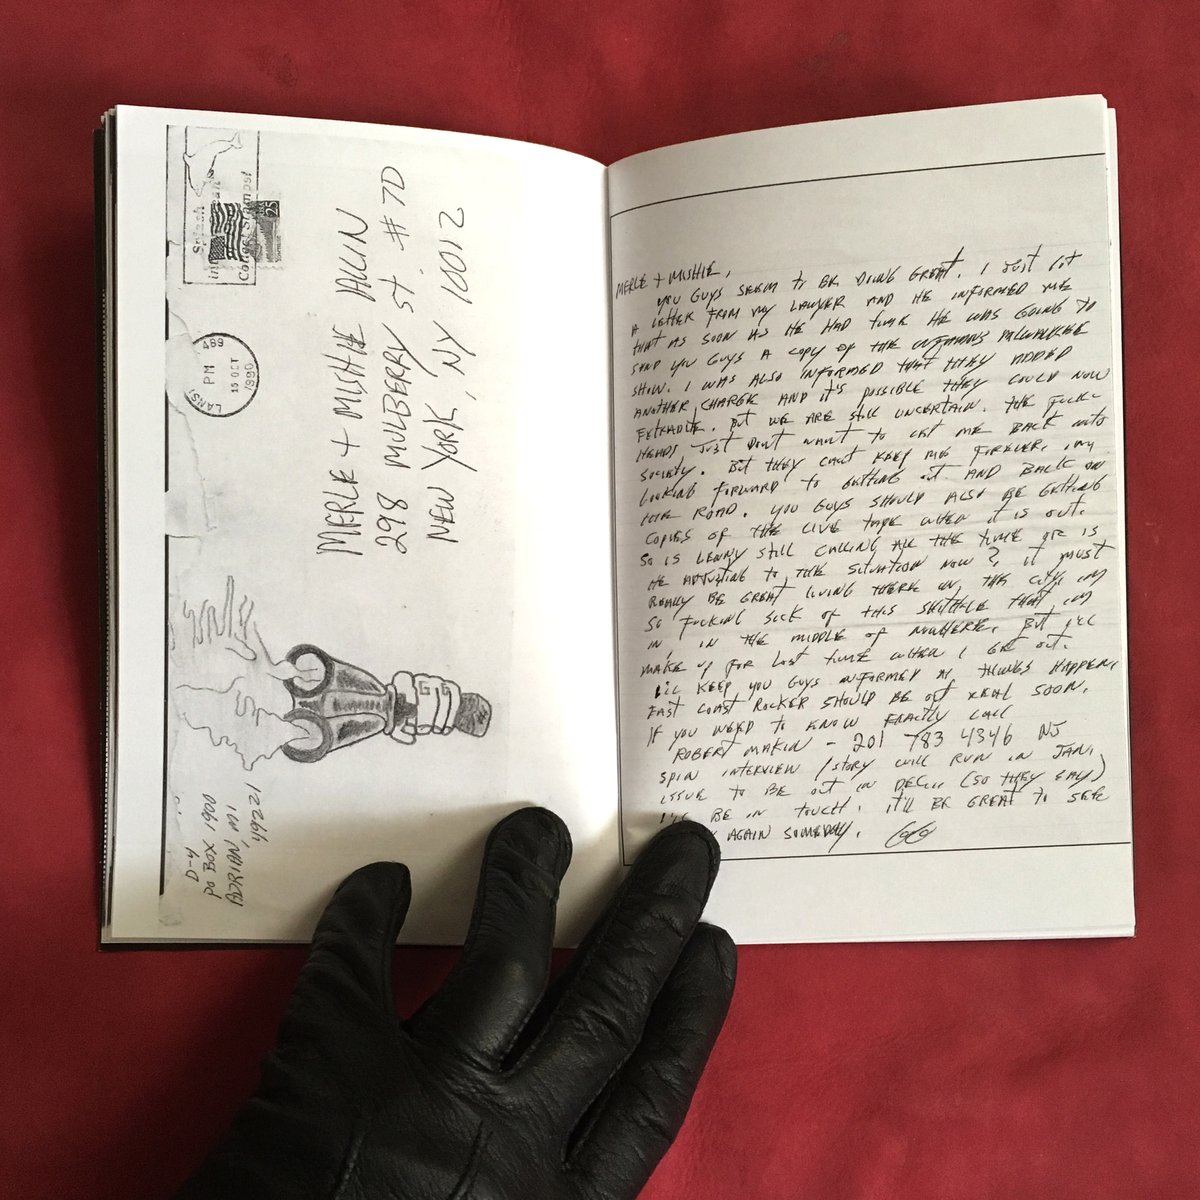 Splash
Collect Stamps!
USA
25
LANSI
489
PM
15 OCT
1990
MERLE + MISHIE ALLIN
298 MULBERRY ST. #7D
NEW YORK, NY 10012
D-4
PO BOX 1900
ADRIAN, MI
49221
MERLE + MISHIE,
YOU GUYS SEEM TO BE DOING GREAT. I JUST GOT
A LETTER FROM MY LAWYER AND HE INFORMED ME
THAT AS SOON AS HE HAD TIME HE WAS GOING TO
SEND YOU GUYS A COPY OF THE INFAMOUS MILWAUKEE
SHOW. I WAS ALSO INFORMED THAT THEY ADDED
ANOTHER CHARGE AND IT'S POSSIBLE THEY COULD NOW
EXTRADITE. BUT WE ARE STILL UNCERTAIN. THE FUCK-
HEADS JUST DON'T WANT TO LET ME BACK INTO
SOCIETY. BUT THEY CAN'T KEEP ME FOREVER. I'M
LOOKING FORWARD TO GETTING OUT AND BACK ON
THE ROAD. YOU GUYS SHOULD ALSO BE GETTING
COPIES OF THE LIVE TAPE WHEN IT IS OUT.
SO IS LENNY STILL CALLING ALL THE TIME OR IS
HE ADJUSTING TO THE SITUATION NOW? IT MUST
REALLY BE GREAT LIVING THERE IN THE CITY. I'M
SO FUCKING SICK OF THIS SHITHOLE THAT I'M
IN, IN THE MIDDLE OF NOWHERE. BUT I'LL
MAKE UP FOR LOST TIME WHEN I GET OUT.
I'LL KEEP YOU GUYS INFORMED AS THINGS HAPPEN.
EAST COAST ROCKER SHOULD BE OUT REAL SOON.
IF YOU NEED TO KNOW EXACTLY CALL
ROBERT MAKIN - 201 783 4346 NJ
SPIN INTERVIEW / STORY WILL RUN IN JAN.
ISSUE TO BE OUT IN DEC... (SO THEY SAY)
I'LL BE IN TOUCH. IT'LL BE GREAT TO SEE
AGAIN SOMEDAY. GG